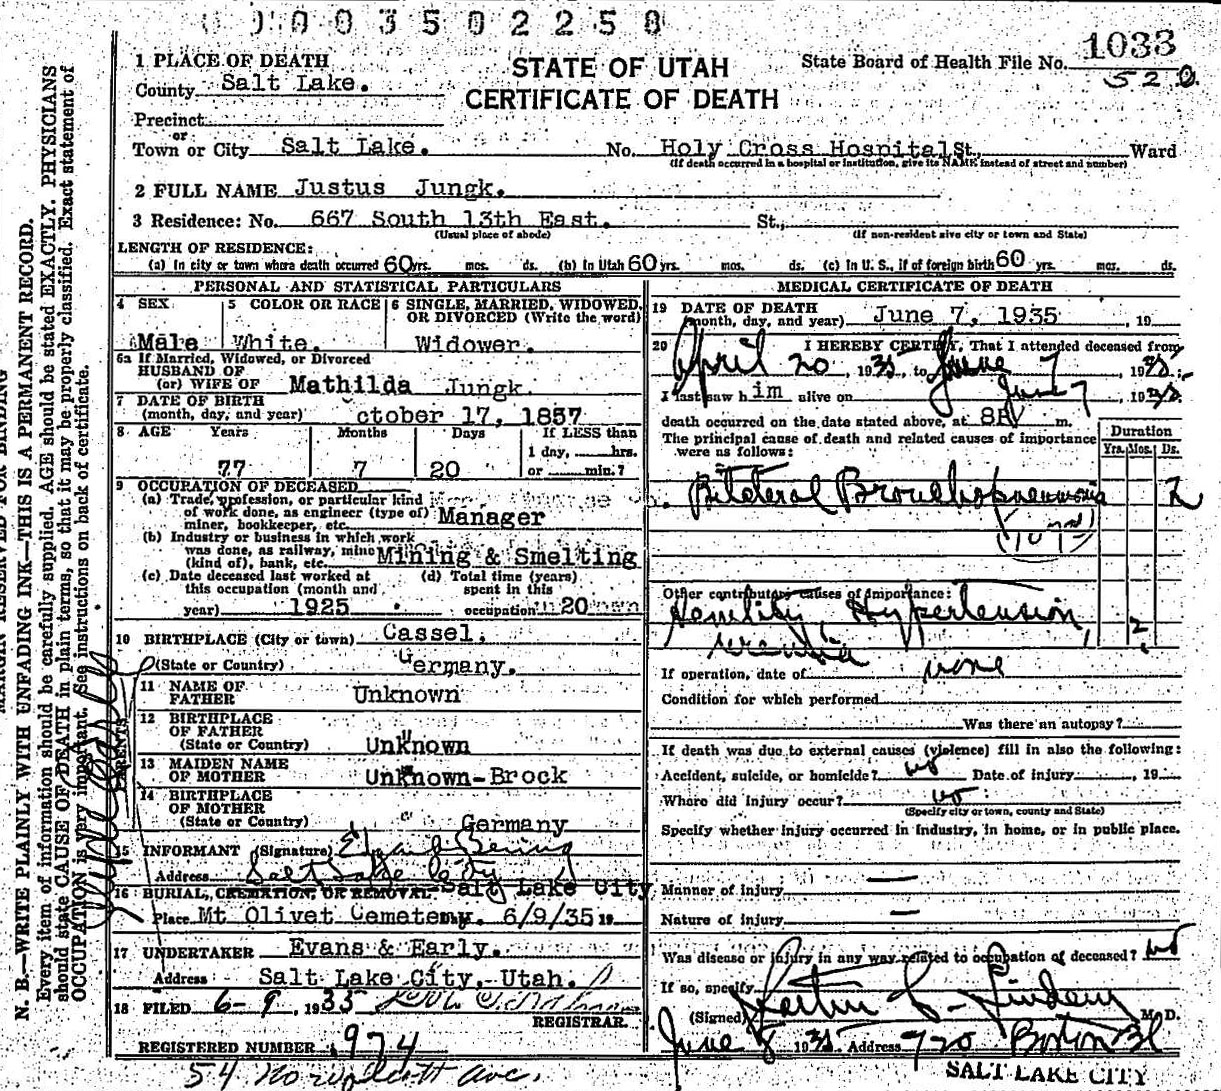 0003502258
1 PLACE OF DEATH
STATE OF UTAH
CERTIFICATE OF DEATH
State Board of Health File No. 1033
520
County Salt Lake.
Precinct
or
Town or City Salt Lake. No. Holy Cross Hospital St., Ward
(If death occurred in a hospital or institution, give its NAME instead of street and number)
2 FULL NAME Justus Jungk.
3 Residence: No. 667 South 13th East. St.,
(Usual place of abode) (If non-resident give city or town and State)
LENGTH OF RESIDENCE:
(a) In city or town where death occurred 60 yrs. mos. ds. (b) In Utah 60 yrs. mos. ds. (c) In U. S., if of foreign birth 60 yrs. mos. ds.
PERSONAL AND STATISTICAL PARTICULARS
4 SEX
Male
5 COLOR OR RACE
White.
6 SINGLE, MARRIED, WIDOWED,
OR DIVORCED (Write the word)
Widower.
6a If Married, Widowed, or Divorced
HUSBAND OF
(or) WIFE OF Mathilda Jungk.
7 DATE OF BIRTH
(month, day, and year) ctober 17, 1857
8 AGE Years Months Days If LESS than
1 day, hrs.
77 7 20 or min.?
9 OCCUPATION OF DECEASED
(a) Trade, profession, or particular kind
of work done, as engineer (type of)
miner, bookkeeper, etc. Manager
(b) Industry or business in which work
was done, as railway, mine
(kind of), bank, etc. Mining & Smelting
(c) Date deceased last worked at
this occupation (month and
year) 1925
(d) Total time (years)
spent in this
occupation 20
10 BIRTHPLACE (City or town) Cassel.
(State or Country) Germany.
PARENTS
11 NAME OF
FATHER Unknown
12 BIRTHPLACE
OF FATHER
(State or Country) Unknown
13 MAIDEN NAME
OF MOTHER Unknown-Brock
14 BIRTHPLACE
OF MOTHER
(State or Country) Germany
15 INFORMANT (Signature)
Address Salt Lake City
16 BURIAL, CREMATION, OR REMOVAL Salt Lake City
Place Mt Olivet Cemetery. 6/9/35 19
17 UNDERTAKER Evans & Early.
Address Salt Lake City, Utah.
18 FILED 6-9, 1935
REGISTRAR.
REGISTERED NUMBER 974
54 Ave.
MEDICAL CERTIFICATE OF DEATH
19 DATE OF DEATH
(month, day, and year) June 7, 1935, 19
20 I HEREBY CERTIFY, That I attended deceased from
April 20, 1935, to June 7, 1935;
I last saw him alive on June 7, 1935
death occurred on the date stated above, at 8P m.
The principal cause of death and related causes of importance
were as follows:
Duration
Yrs. Mos. Ds.
Bilateral Bronchopneumonia 2
(107a)
Other contributory causes of importance:
Senility, Hypertension, 2
uremia
If operation, date of none
Condition for which performed
Was there an autopsy?
If death was due to external causes (violence) fill in also the following:
Accident, suicide, or homicide? no Date of injury, 19
Where did injury occur? no
(Specify city or town, county and State)
Specify whether injury occurred in industry, in home, or in public place.
Manner of injury —
Nature of injury —
Was disease or injury in any way related to occupation of deceased? no
If so, specify
(Signed) M. D.
June 8 1935 Address 720 Boston Bl
SALT LAKE CITY
MARGIN RESERVED FOR BINDING
N. B.—WRITE PLAINLY WITH UNFADING INK—THIS IS A PERMANENT RECORD.
Every item of information should be carefully supplied. AGE should be stated EXACTLY. PHYSICIANS
should state CAUSE OF DEATH in plain terms, so that it may be properly classified. Exact statement of
OCCUPATION is very important. See instructions on back of certificate.